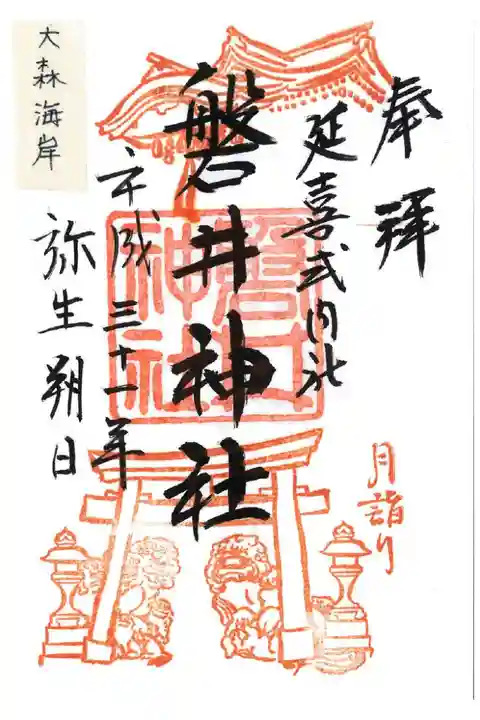 奉拝
延喜式内社
磐井神社
磐井
神社
平成三十一年
弥生朔日
月詣り
大森海岸